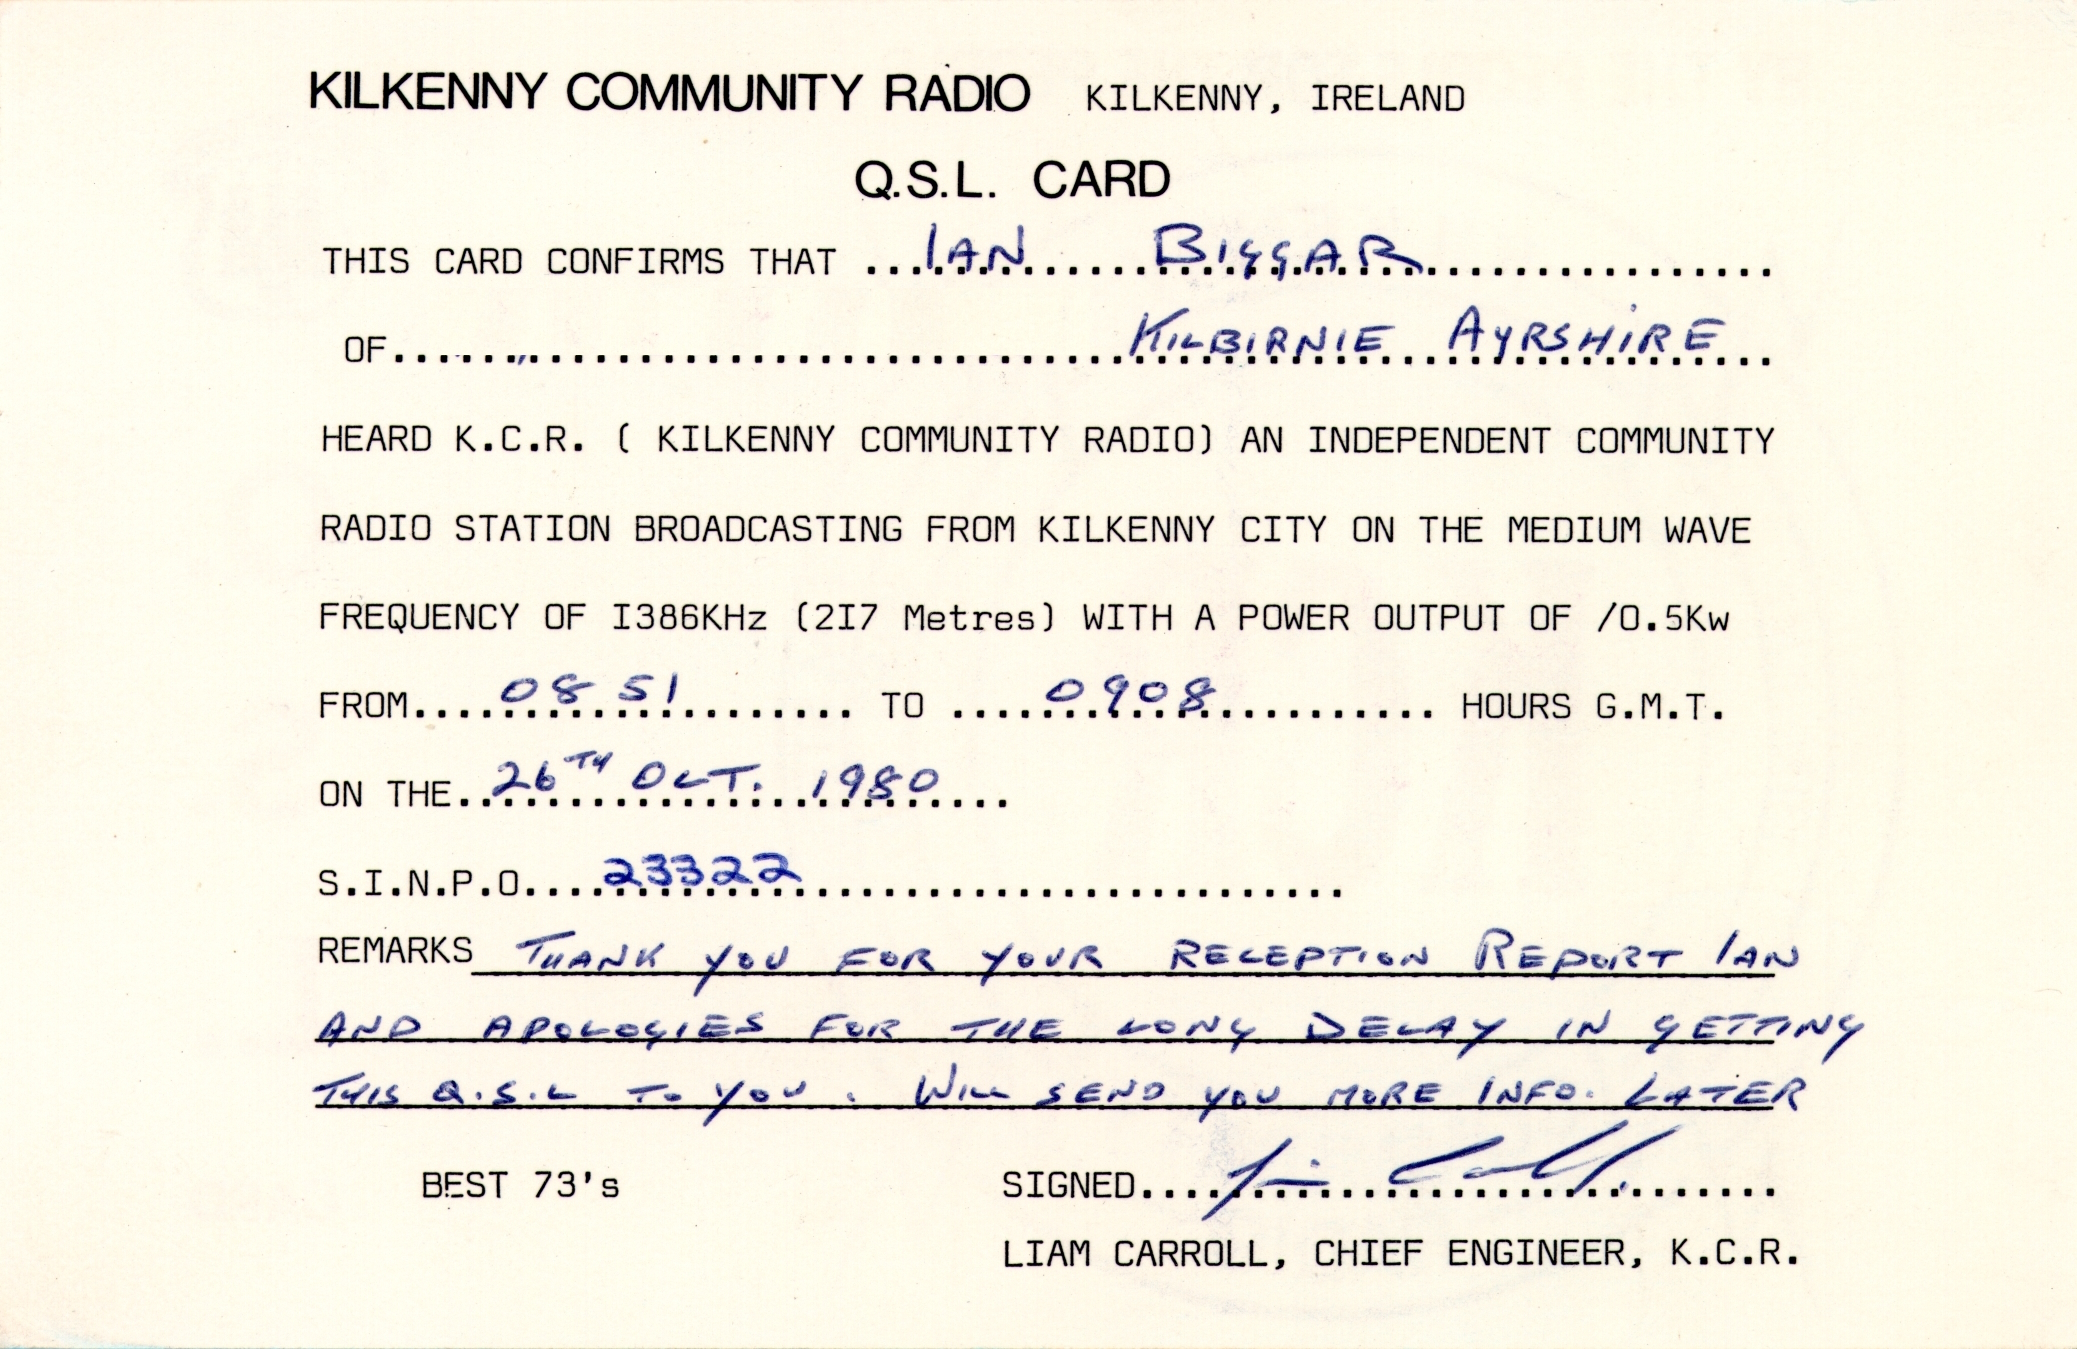 KILKENNY COMMUNITY RADIO KILKENNY, IRELAND
Q.S.L. CARD
THIS CARD CONFIRMS THAT ... IAN BIGGAR ...
OF ... KILBIRNIE AYRSHIRE ...
HEARD K.C.R. ( KILKENNY COMMUNITY RADIO) AN INDEPENDENT COMMUNITY
RADIO STATION BROADCASTING FROM KILKENNY CITY ON THE MEDIUM WAVE
FREQUENCY OF I386KHz (2I7 Metres) WITH A POWER OUTPUT OF /0.5Kw
FROM... 0851 ... TO ... 0908 ... HOURS G.M.T.
ON THE... 26TH OCT. 1980 ...
S.I.N.P.O.... 23322 ...
REMARKS THANK YOU FOR YOUR RECEPTION REPORT IAN
AND APOLOGIES FOR THE LONG DELAY IN GETTING
THIS Q.S.L TO YOU. WILL SEND YOU MORE INFO. LATER
BEST 73's SIGNED... Liam Carroll ...
LIAM CARROLL, CHIEF ENGINEER, K.C.R.